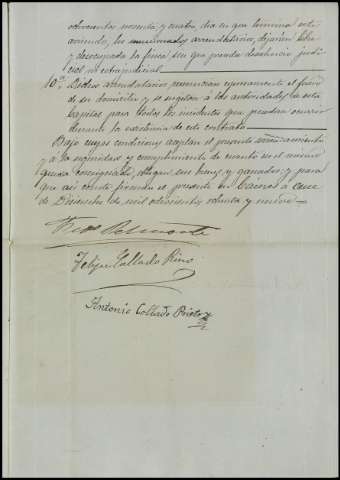 ochocientos noventa y cuatro dia en que termina este
arriendo, los mencionados arrendatarios, dejarán libre
y desocupada la finca sin que preceda desahucio judi-
cial ni extrajudicial.
10.ª Dichos arrendatarios renuncian expresamente el fuero
de su domicilio y se sugetan a las autoridades de esta
Capital para todos los incidentes que puedan ocurrir
durante la existencia de este contrato.
Bajo cuyas condiciones aceptan el presente arrendamiento
y a la seguridad y cumplimiento de cuanto en el mismo
queda consignado, obligan sus bienes y ganados; y para
que asi conste firman el presente en Caceres a once
de Diciembre de mil ochocientos ochenta y nueve.
Felipe Collado Rino
Antonio Collado Prieto